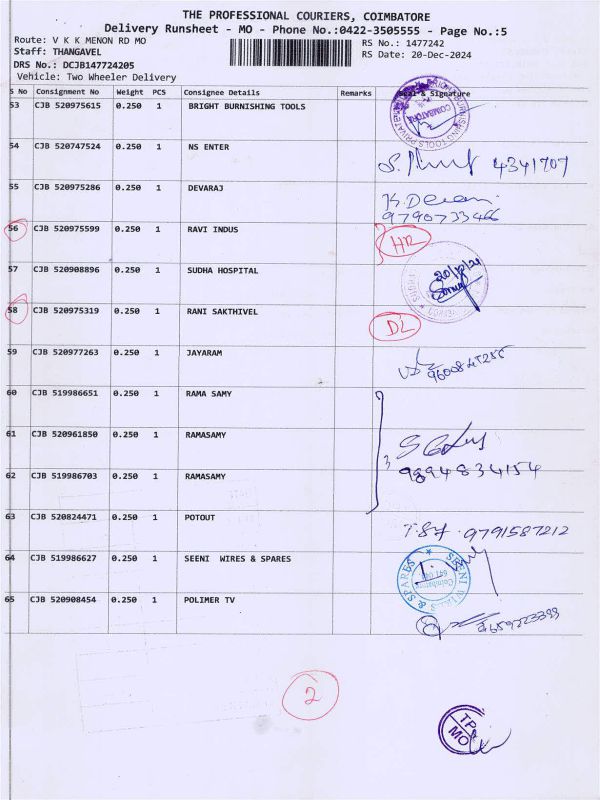 THE PROFESSIONAL COURIERS, COIMBATORE
Delivery Runsheet - MO - Phone No.:0422-3505555 - Page No.:5
Route: V K K MENON RD MO
RS No.: 1477242
Staff: THANGAVEL
RS Date: 20-Dec-2024
DRS No.: DCJB147724205
Vehicle: Two Wheeler Delivery
S No Consignment No Weight PCS Consignee Details Remarks Seal & Signature
53 CJB 520975615 0.250 1 BRIGHT BURNISHING TOOLS COIMBATORE
54 CJB 520747524 0.250 1 NS ENTER 4341707
55 CJB 520975286 0.250 1 DEVARAJ
9790733466
56 CJB 520975599 0.250 1 RAVI INDUS HR
57 CJB 520908896 0.250 1 SUDHA HOSPITAL 20/12/24
58 CJB 520975319 0.250 1 RANI SAKTHIVEL DL
59 CJB 520977263 0.250 1 JAYARAM
60 CJB 519986651 0.250 1 RAMA SAMY
61 CJB 520961850 0.250 1 RAMASAMY
3
62 CJB 519986703 0.250 1 RAMASAMY 9894834154
63 CJB 520824471 0.250 1 POTOUT 9791587212
64 CJB 519986627 0.250 1 SEENI WIRES & SPARES SEENI WIRES & SPARES
65 CJB 520908454 0.250 1 POLIMER TV
2
TPC
MO